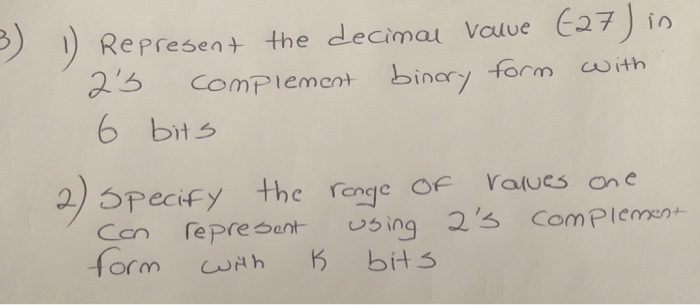 3) 1) Represent the decimal value (-27) in
2's complement binary form with
6 bits
2) Specify the range of values one
can represent using 2's complement
form with K bits